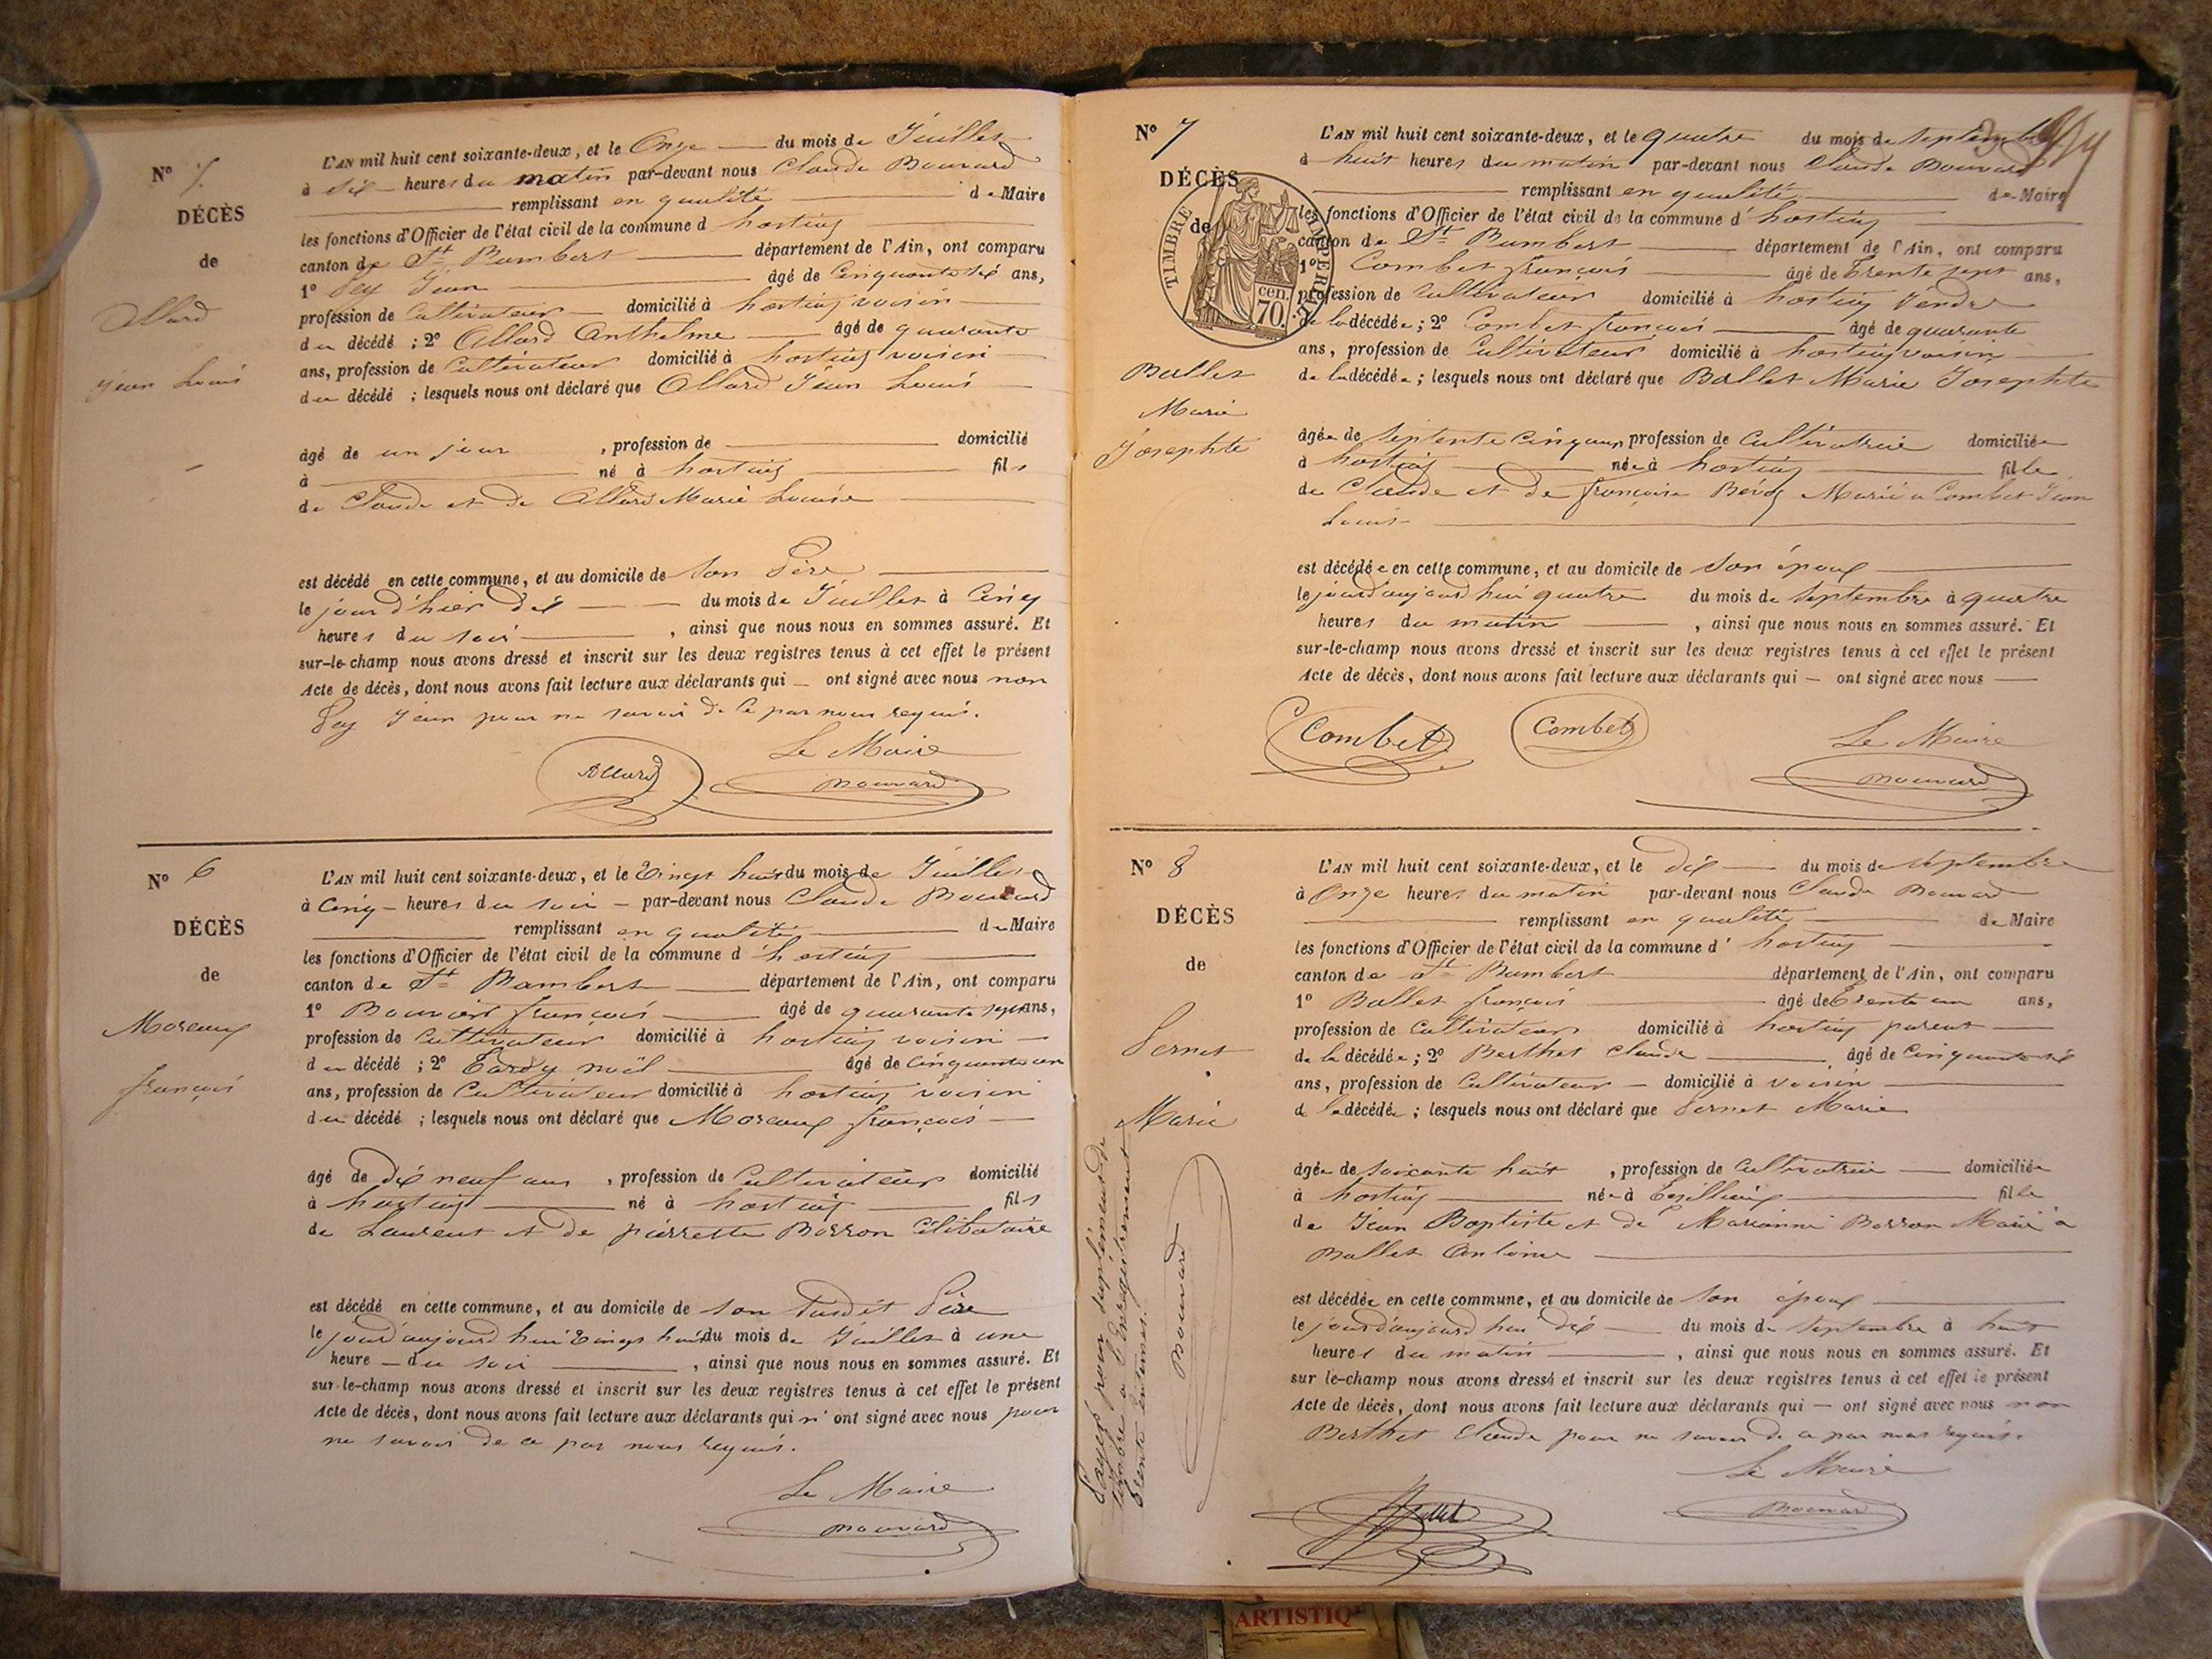 N° 5
DÉCÈS
de
Allard
Jean Louis
L'AN mil huit cent soixante-deux, et le Onze du mois de Juillet
à dix heures du matin par-devant nous Claude Bouvard
remplissant en qualité de Maire
les fonctions d'Officier de l'état civil de la commune d' hostiaz
canton de St Rambert département de l'Ain, ont comparu
1° Jean âgé de Cinquante six ans,
profession de Cultivateur domicilié à hostiaz voisin
du décédé ; 2° Allard Anthelme âgé de quarante
ans, profession de Cultivateur domicilié à hostiaz voisin
du décédé ; lesquels nous ont déclaré que Allard Jean Louis
âgé de un jour , profession de domicilié
à né à hostiaz fils
de Claude et de Allard Marie Louise
est décédé en cette commune, et au domicile de son Père
le jour d'hier dix du mois de Juillet à Cinq
heures du soir , ainsi que nous nous en sommes assuré. Et
sur-le-champ nous avons dressé et inscrit sur les deux registres tenus à cet effet le présent
Acte de décès, dont nous avons fait lecture aux déclarants qui ont signé avec nous non
Jean pour ne savoir de ce par nous requis.
Le Maire
Allard Bouvard
N° 6
DÉCÈS
de
Moreaux
françois
L'AN mil huit cent soixante-deux, et le Vingt huit du mois de Juillet
à Cinq heures du soir par-devant nous Claude Bouvard
remplissant en qualité de Maire
les fonctions d'Officier de l'état civil de la commune d' hostiaz
canton de St Rambert département de l'Ain, ont comparu
1° Bouvard françois âgé de quarante sept ans,
profession de Cultivateur domicilié à hostiaz voisin
du décédé ; 2° Tardy noël âgé de Cinquante un
ans, profession de Cultivateur domicilié à hostiaz voisin
du décédé ; lesquels nous ont déclaré que Moreaux françois
âgé de dix neuf ans , profession de Cultivateur domicilié
à hostiaz né à hostiaz fils
de Laurent et de pierrette Borron Célibataire
est décédé en cette commune, et au domicile de son susdit Père
le jourd'aujourd'hui Vingt huit du mois de Juillet à une
heure du soir , ainsi que nous nous en sommes assuré. Et
sur-le-champ nous avons dressé et inscrit sur les deux registres tenus à cet effet le présent
Acte de décès, dont nous avons fait lecture aux déclarants qui n' ont signé avec nous pour
ne savoir de ce par nous requis.
Le Maire
Bouvard
N° 7
DÉCÈS
de
TIMBRE IMPERIAL
cen.
70.
Ballet
Marie
Josephte
L'AN mil huit cent soixante-deux, et le quatre du mois de Septembre
à huit heures du matin par-devant nous Claude Bouvard
remplissant en qualité de Maire
les fonctions d'Officier de l'état civil de la commune d' hostiaz
canton de St Rambert département de l'Ain, ont comparu
1° Combet françois âgé de Trente sept ans,
profession de Cultivateur domicilié à hostiaz Gendre
de la décédée ; 2° Combet françois âgé de quarante
ans, profession de Cultivateur domicilié à hostiaz voisin
de la décédée ; lesquels nous ont déclaré que Ballet Marie Josephte
âgée de Septente Cinq ans profession de Cultivatrice domiciliée
à hostiaz née à hostiaz fille
de Claude et de françoise Marié a Combet Jean
Louis
est décédée en cette commune, et au domicile de son époux
le jourd'aujourd'hui quatre du mois de Septembre à quatre
heures du matin , ainsi que nous nous en sommes assuré. Et
sur-le-champ nous avons dressé et inscrit sur les deux registres tenus à cet effet le présent
Acte de décès, dont nous avons fait lecture aux déclarants qui ont signé avec nous
Combet Combet Le Maire
Bouvard
N° 8
DÉCÈS
de
Pernet
Marie
Payé pour supplément de
timbre a l'Enregistrement
trente centimes.
Bouvard
L'AN mil huit cent soixante-deux, et le dix du mois de Septembre
à Onze heures du matin par-devant nous Claude Bouvard
remplissant en qualité de Maire
les fonctions d'Officier de l'état civil de la commune d' hostiaz
canton de St Rambert département de l'Ain, ont comparu
1° Ballet françois âgé de Trente un ans,
profession de Cultivateur domicilié à hostiaz parent
de la décédée ; 2° Berthet Claude âgé de Cinquante six
ans, profession de Cultivateur domicilié à voisin
de la décédée ; lesquels nous ont déclaré que Pernet Marie
âgée de soixante huit , profession de Cultivatrice domiciliée
à hostiaz née à fille
de Jean Baptiste et de Marianne Borron Marié a
Ballet Antoine
est décédée en cette commune, et au domicile de son époux
le jourd'aujourd'hui dix du mois de Septembre à huit
heures du matin , ainsi que nous nous en sommes assuré. Et
sur-le-champ nous avons dressé et inscrit sur les deux registres tenus à cet effet le présent
Acte de décès, dont nous avons fait lecture aux déclarants qui ont signé avec nous non
Berthet Claude pour ne savoir de ce par nous requis.
Le Maire
Bouvard
ARTISTIQ